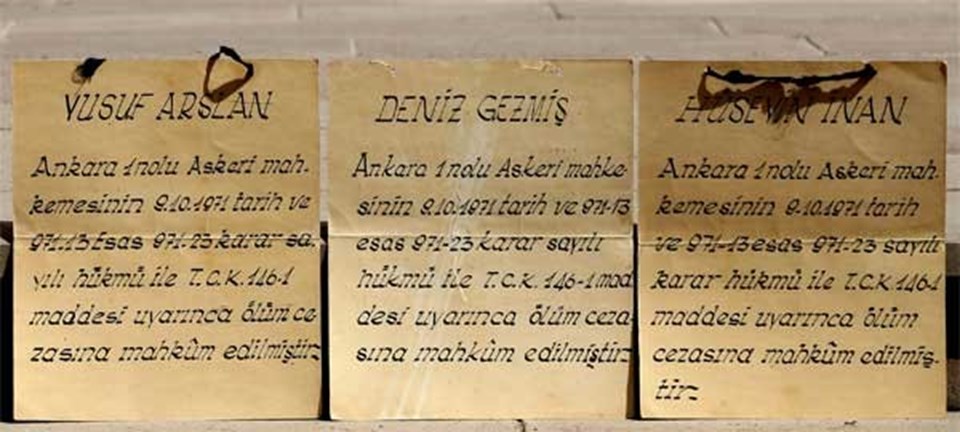 YUSUF ARSLAN
Ankara 1 nolu Askeri mah.
kemesinin 9.10.1971 tarih ve
971-13 Esas 971-23 karar sa.
yılı hükmü ile T.C.K. 146-1
maddesi uyarınca ölüm ce
zasına mahkûm edilmiştir
DENİZ GEZMİŞ
Ankara 1 nolu Askeri mahke-
sinin 9.10.1971 tarih ve 971-13
esas 971-23 karar sayılı
hükmü ile T.C.K. 146-1 mad
desi uyarınca ölüm ceza-
sına mahkûm edilmiştir
HÜSEYİN İNAN
Ankara 1 nolu Askeri mah.
kemesinin 9.10.1971 tarih
ve 971-13 esas 971-23 sayılı
karar hükmü ile T.C.K. 146-1
maddesi uyarınca ölüm
cezasına mahkûm edilmiş-
tir